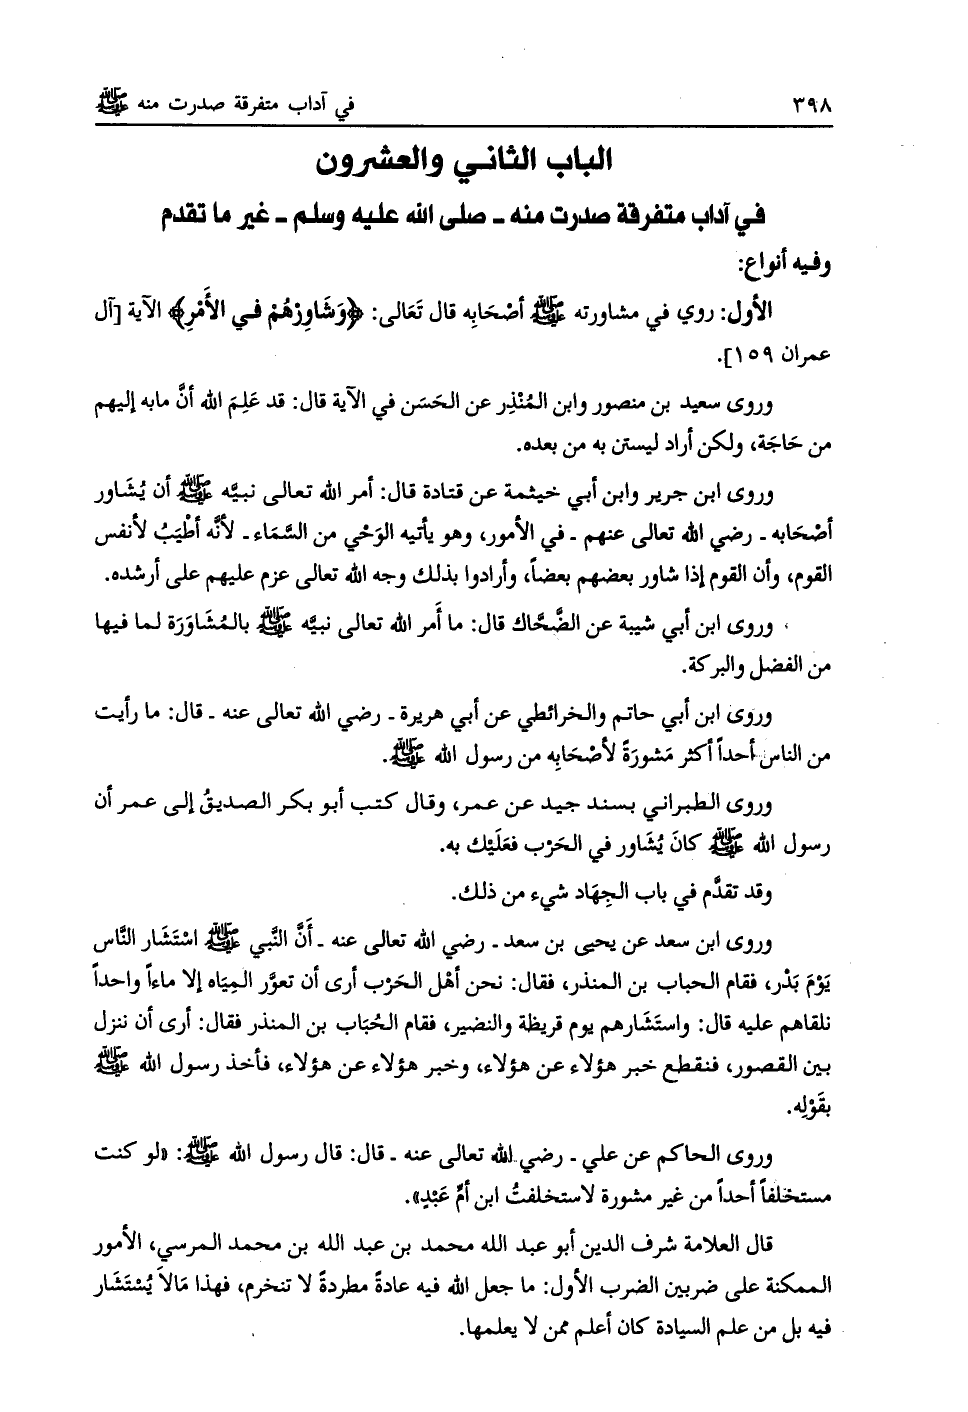 ٣٩٨ في آداب متفرقة صدرت منه ﷺ
الباب الثاني والعشرون
في آداب متفرقة صدرت منه ـ صلى الله عليه وسلم ـ غير ما تقدم
وفيه أنواع:
الأول: روي في مشاورته ﷺ أصْحَابِه قال تَعَالى: ﴿وَشَاوِرْهُمْ فـي الأَمْرِ﴾ الآية [آل
عمران ١٥٩].
وروى سعيد بن منصور وابن المُنْذِر عن الحَسَن في الآية قال: قد عَلِمَ الله أنَّ مابه إليهم
من حَاجَة، ولكن أراد ليستن به من بعده.
وروى ابن جرير وابن أبي خيثمة عن قتادة قال: أمر الله تعالى نبيَّه ﷺ أن يُشَاور
أصْحَابه ـ رضي الله تعالى عنهم ـ في الأمور، وهو يأتيه الوَحْي من السَّمَاء ـ لأنَّه أطْيَبُ لأنفس
القوم، وأن القوم إذا شاور بعضهم بعضاً، وأرادوا بذلك وجه الله تعالى عزم عليهم على أرشده.
وروى ابن أبي شيبة عن الضَّحَّاك قال: ما أَمر الله تعالى نبيَّه ﷺ بالمُشَاوَرَة لما فيها
من الفضل والبركة.
وروى ابن أبي حاتم والخرائطي عن أبي هريرة ـ رضي الله تعالى عنه ـ قال: ما رأيت
من الناس أحداً أكثر مَشورَةً لأصْحَابِه من رسول الله ﷺ.
وروى الطبراني بسند جيد عن عمر، وقال كتب أبو بكر الصديقُ إلى عمر أن
رسول الله ﷺ كانَ يُشَاور في الحَرْب فعَلَيْك به.
وقد تقدَّم في باب الجِهَاد شيء من ذلك.
وروى ابن سعد عن يحيى بن سعد ـ رضي الله تعالى عنه ـ أنَّ النَّبي ﷺ اسْتَشَار النَّاس
يَوْمَ بَدْر، فقام الحباب بن المنذر، فقال: نحن أهْل الحَرْب أرى أن تعوَّر المِيَاه إلا ماءاً واحداً
نلقاهم عليه قال: واستَشَارهم يوم قريظة والنضير، فقام الحُبَاب بن المنذر فقال: أرى أن ننزل
بين القصور، فنقطع خبر هؤلاء عن هؤلاء، وخبر هؤلاء عن هؤلاء، فأخذ رسول الله ﷺ
بقَوْلِه.
وروى الحاكم عن علي ـ رضي الله تعالى عنه ـ قال: قال رسول الله ﷺ: «لو كنت
مستخلفاً أحداً من غير مشورة لاستخلفتُ ابن أمِّ عَبْدٍ».
قال العلامة شرف الدين أبو عبد الله محمد بن عبد الله بن محمد المرسي، الأمور
الممكنة على ضربين الضرب الأول: ما جعل الله فيه عادةً مطردةً لا تنخرم، فهذا مَالاَ يُسْتَشَار
فيه بل من علم السيادة كان أعلم ممن لا يعلمها.